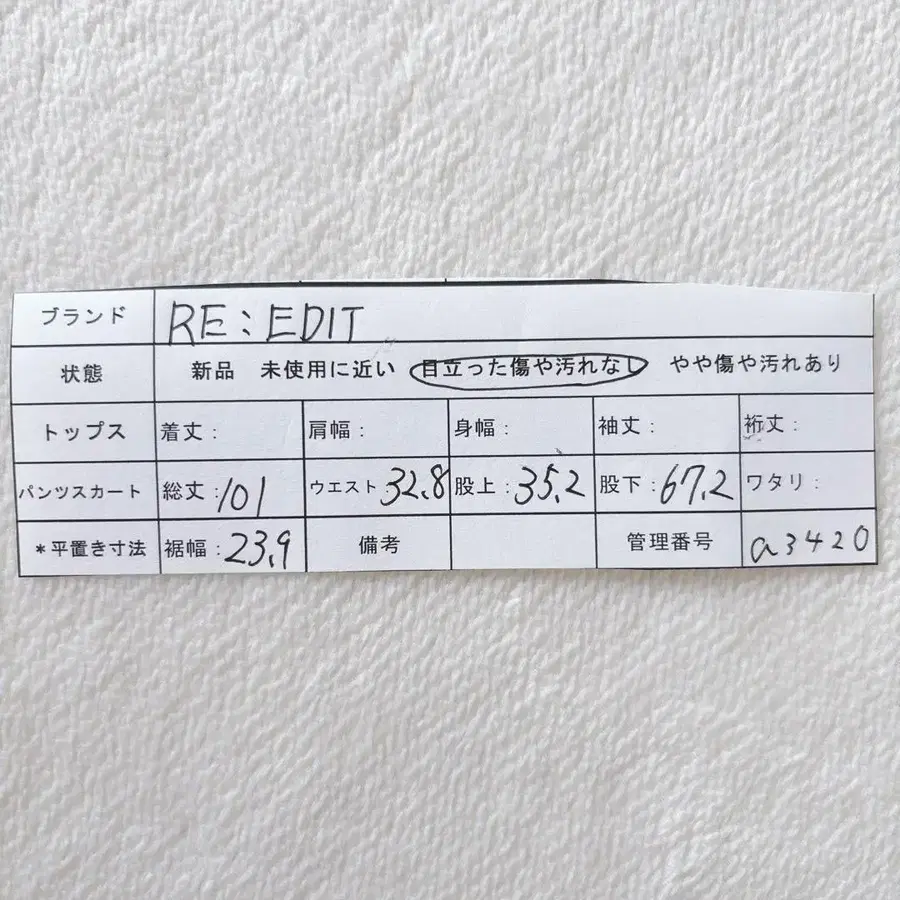 ブランド RE:EDIT
状態 新品 未使用に近い 目立った傷や汚れなし やや傷や汚れあり
トップス 着丈: 肩幅: 身幅: 袖丈: 裄丈:
パンツスカート 総丈:101 ウエスト:32.8 股上:35.2 股下:67.2 ワタリ:
*平置き寸法 裾幅:23.9 備考 管理番号 a3420